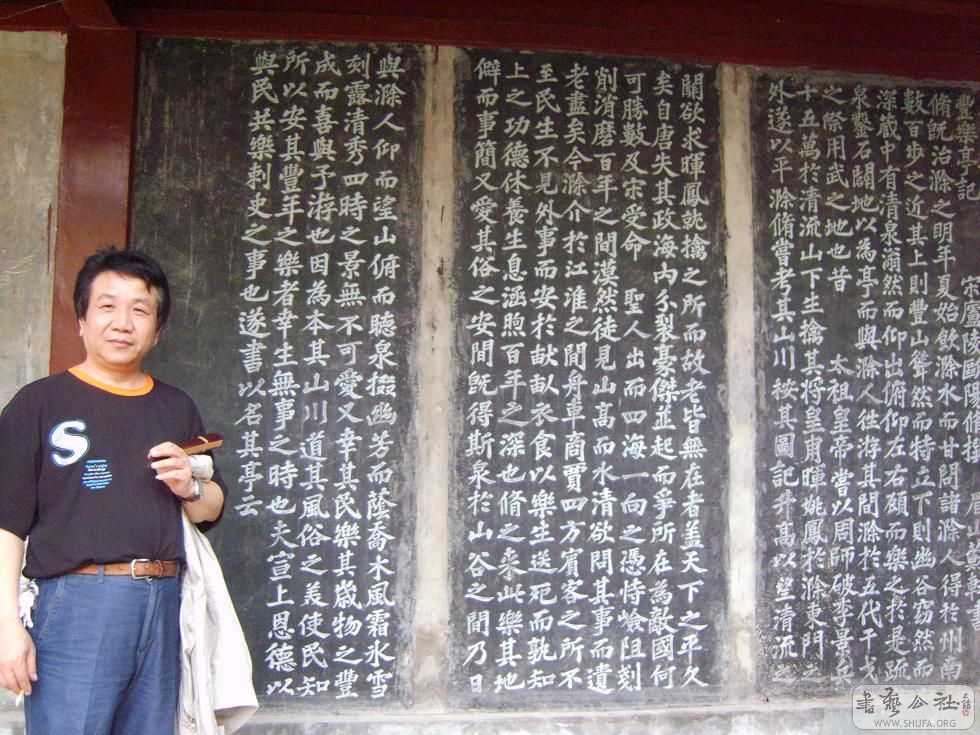 豐樂亭記 宋廬陵歐陽脩撰
脩旣治滁之明年夏始飲滁水而甘問諸滁人得於州南
數百步之近其上則豐山聳然而特立下則幽谷窈然而
深蔵中有清泉滃然而仰出俯仰左右顧而樂之於是疏
泉鑿石闢地以為亭而與滁人徃游其間滁於五代干戈
之際用武之地也昔 太祖皇帝嘗以周師破李景兵
十五萬於清流山下生擒其将皇甫暉姚鳳於滁東門之
外遂以平滁脩嘗考其山川按其圖記升髙以望清流之
關欲求暉鳳就擒之所而故老皆無在者盖天下之平久
矣自唐失其政海内分裂豪傑並起而爭所在為敵國何
可勝數及宋受命 聖人出而四海一向之憑恃嶮阻刻
削消磨百年之間漠然徒見山髙而水清欲問其事而遺
老盡矣今滁介於江淮之間舟車商賈四方賓客之所不
至民生不見外事而安於畎畝衣食以樂生送死而孰知
上之功德休養生息涵煦百年之深也脩之来此樂其地
僻而事簡又愛其俗之安間旣得斯泉於山谷之間乃日
與滁人仰而望山俯而聴泉掇幽芳而蔭喬木風霜氷雪
刻露清秀四時之景無不可愛又幸其民樂其歲物之豐
成而喜與予游也因為本其山川道其風俗之美使民知
所以安其豐年之樂者幸生無事之時也夫宣上恩德以
與民共樂刺史之事也遂書以名其亭云
S
書藝公社
WWW.SHUFA.ORG